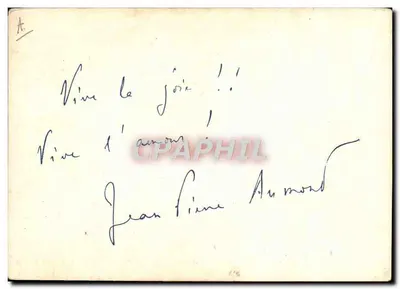 A.
Vive la joie !!
Vive l'amour !
CPAPHIL
Jean Pierre Aumont